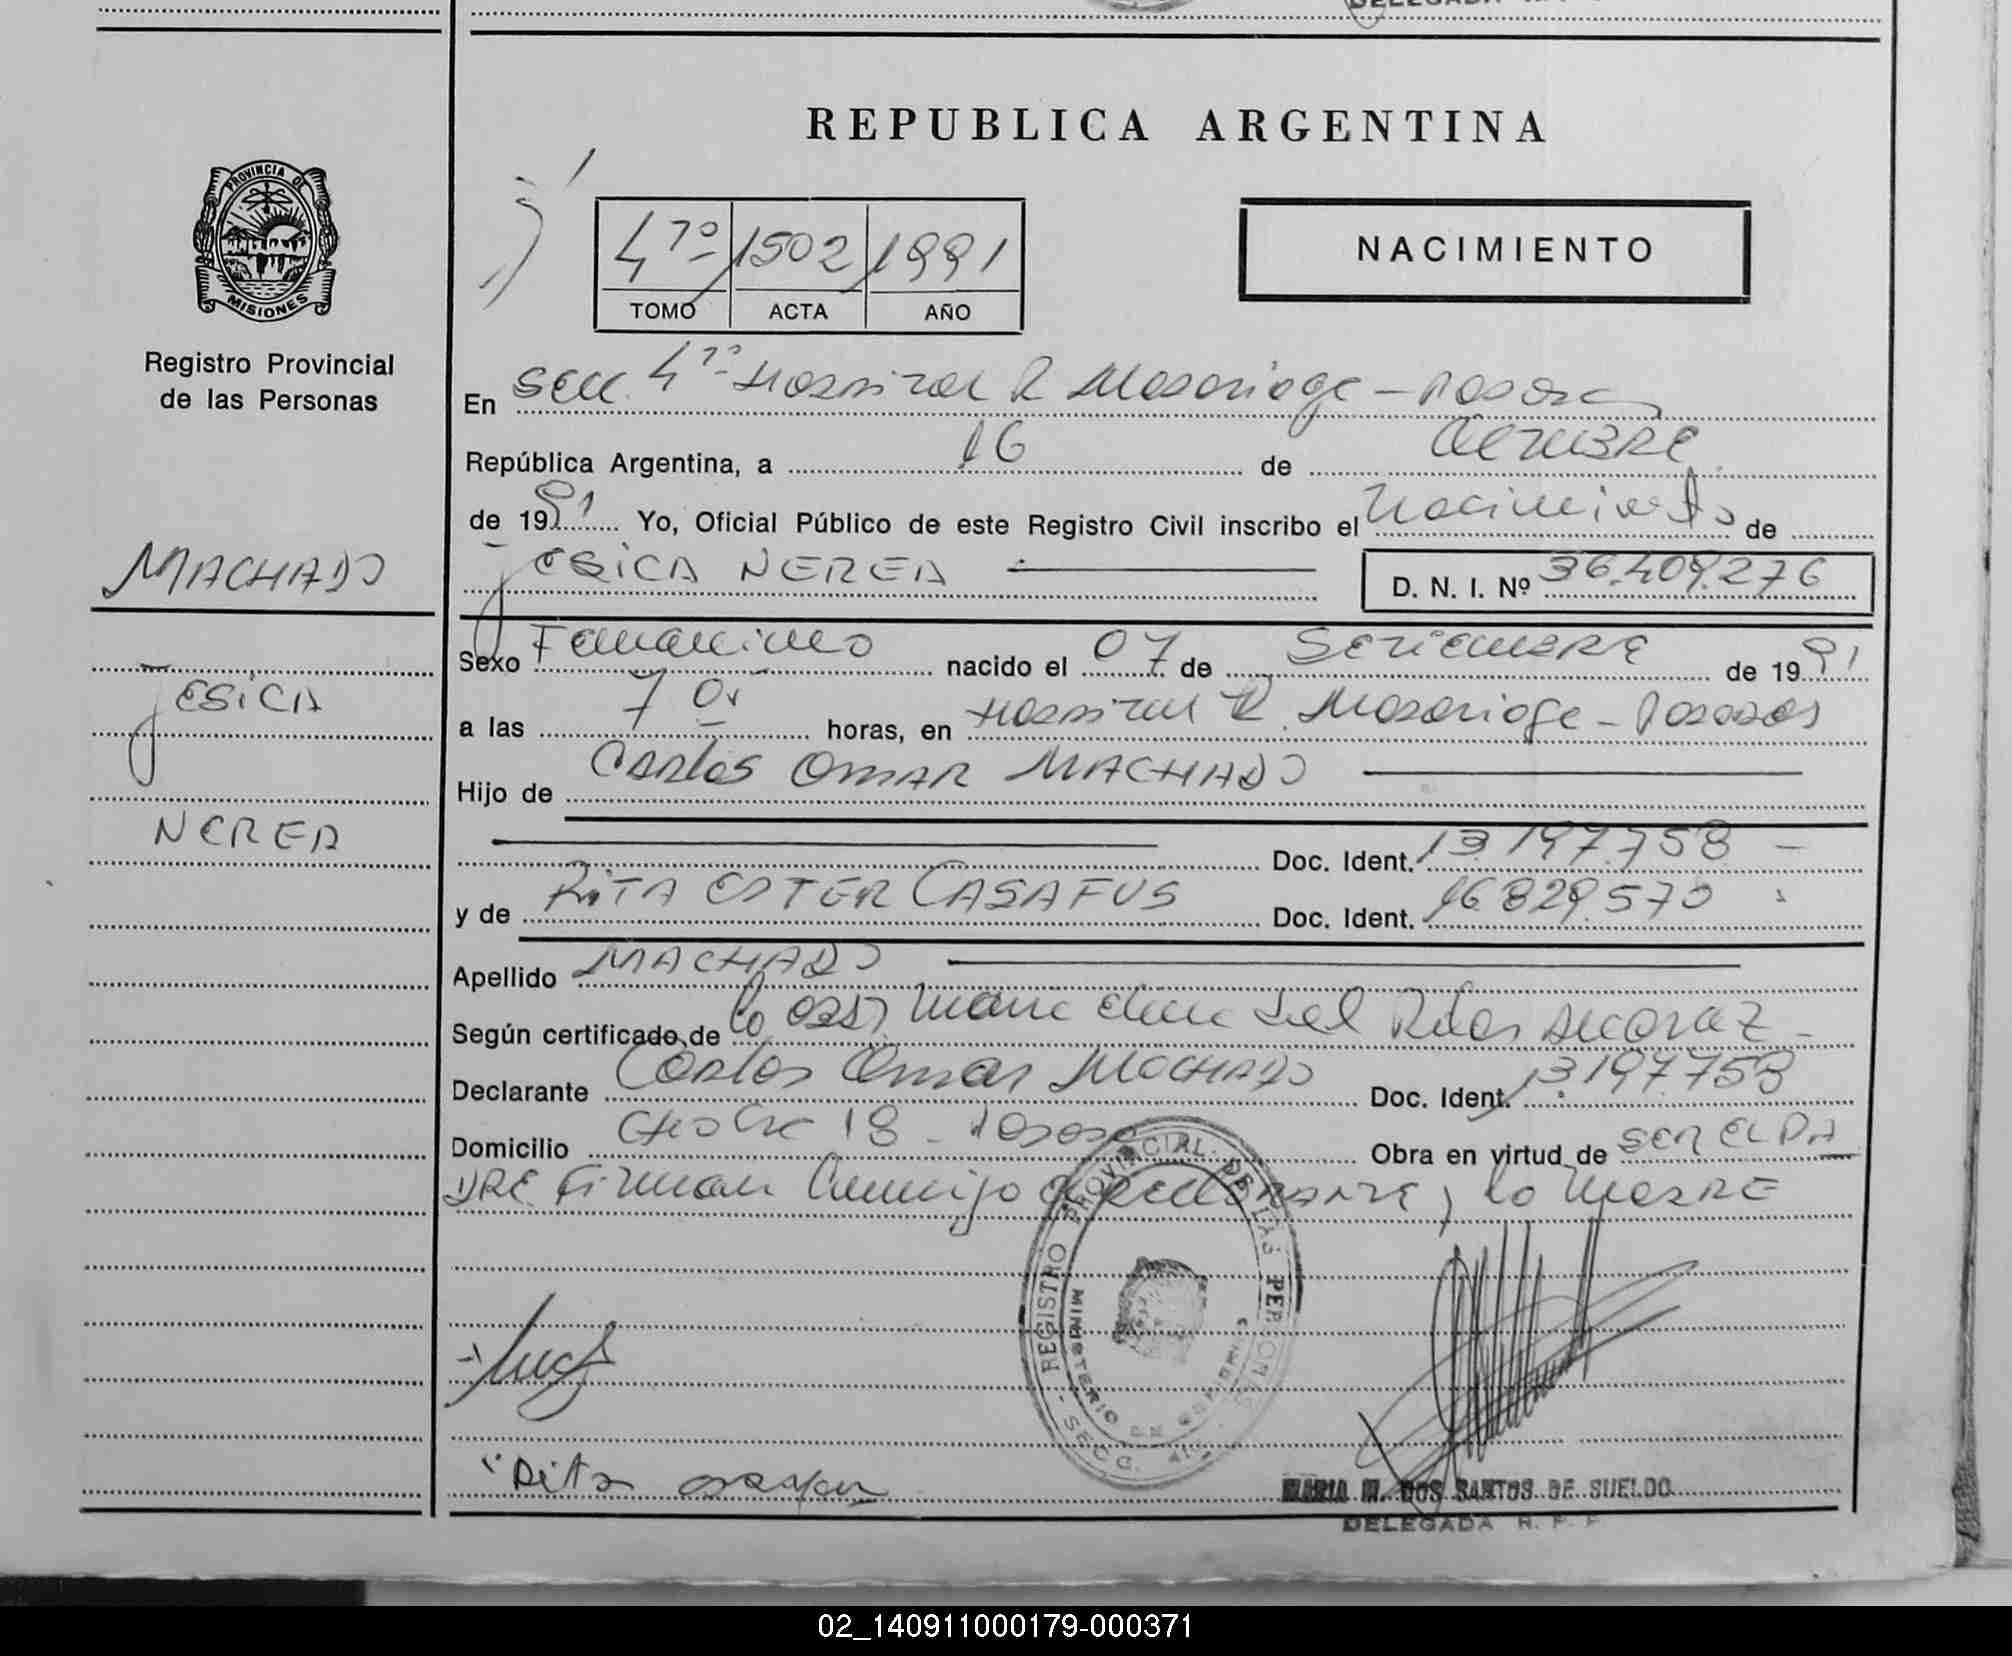 REPUBLICA ARGENTINA
PROVINCIA DE
MISIONES
Registro Provincial
de las Personas
4º 1502 1991
TOMO ACTA AÑO
NACIMIENTO
En Secc. 4º Hospital R Madariaga - Posadas
República Argentina, a 16 de Octubre
de 1991 Yo, Oficial Público de este Registro Civil inscribo el Nacimiento de
JESICA NEREA D. N. I. Nº 36.409.276
MACHADO
JESICA
NEREA
Sexo Femenino nacido el 07 de Septiembre de 1991
a las 7 horas, en Hospital R. Madariaga - Posadas
Hijo de Carlos Omar MACHADO
Doc. Ident. 13.197.758
y de RITA ESTER CASAFUS Doc. Ident. 16.829.570
Apellido MACHADO
Según certificado de la del
Declarante Carlos Omar MACHADO Doc. Ident. 13197758
Domicilio 18 - Posadas Obra en virtud de SER EL PA
DRE Firman Conmigo el Declarante y la MADRE
REGISTRO PROVINCIAL DE LAS PERSONAS
MINISTERIO DE GOBIERNO
SECC. 4ta
Rita
MARIA M. DOS SANTOS DE SUELDO
DELEGADA R. P. P
02_140911000179-000371